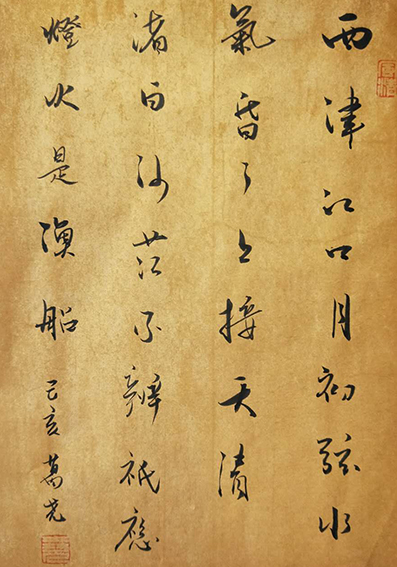 西津江口月初弦水
氣昏々上接天清
渚白沙茫不辨祇應
燈火是漁船 己亥